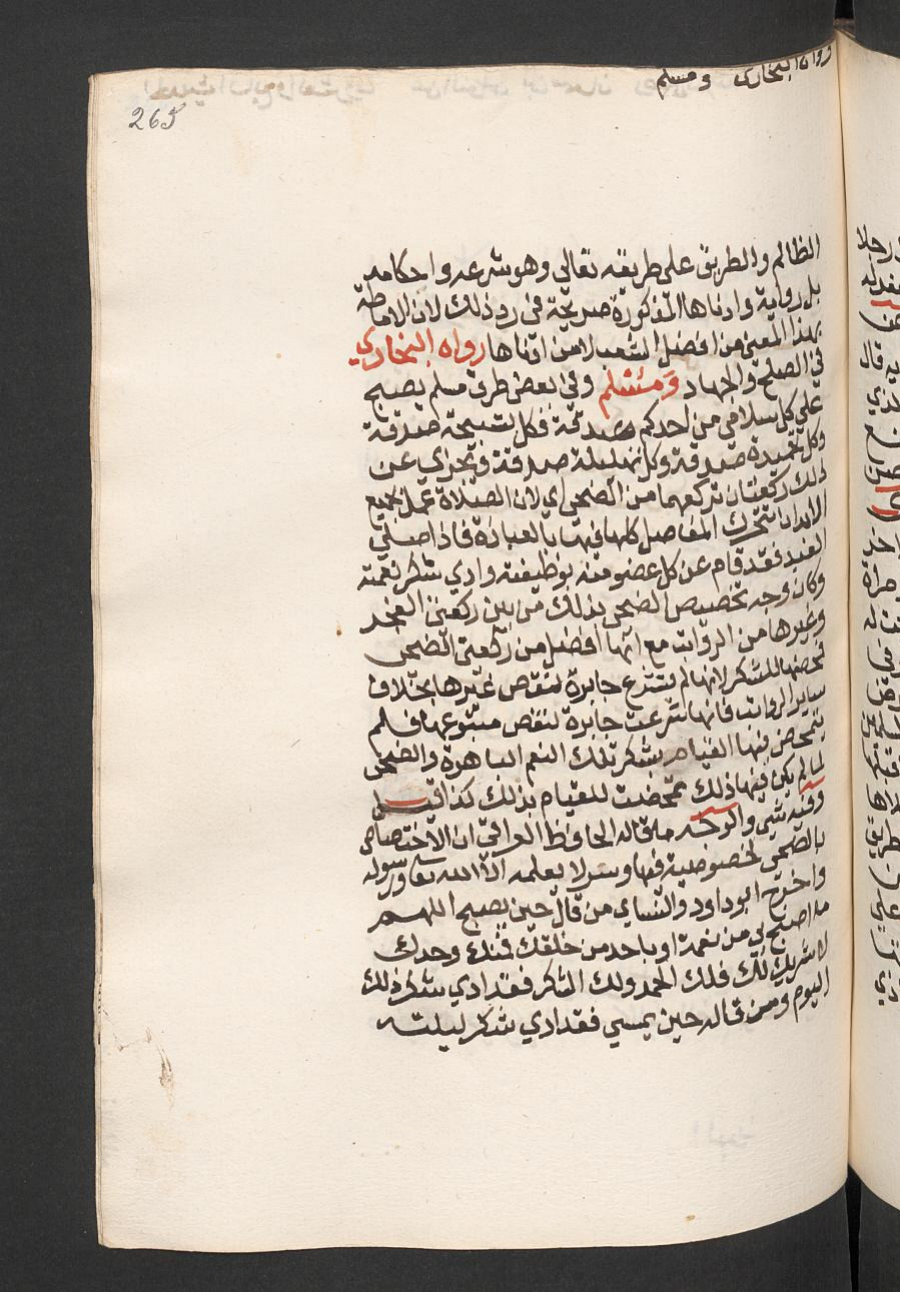 رواه البخاري ومسلم
265
الظالم والطريق على طريقه تعالى وهو شرعه واحكامه
بل رواية وادناها المذكورة صريحة في رد ذلك لان الاماطة
بهذا المعنى من افضل الشعب لا من ادناها رواه البخاري
في الصلح والجهاد ومسلم وفي بعض طرق مسلم يصبح
على كل سلامى من احدكم صدقة فكل تسبيحة صدقة
وكل تحميدة صدقة وكل تهليلة صدقة ويجزي عن
ذلك ركعتان تركعهما من الضحى اي لان الصلاة عمل بجميع
الابدان تتحرك المفاصل كلها فيها بالعبادة فاذا صلى
العبد فقد قام عن كل عضو منه بوظيفته وادي شكر نعمته
وكان وجه تخصيص الضحى بذلك من بين ركعتي الفجر
وغيرها من الرواتب مع انها افضل من ركعتي الضحى
تمحضها للشكر لانها لم تشرع جابرة لنقص غيرها بخلاف
ساير الرواتب فانها شرعت جابرة لنقص متبوعها فلم
يتمحض فيها القيام بشكر تلك النعم الباهرة والضحى
لما لم يكن فيها ذلك تمحضت للقيام بذلك كذا قيل
وفيه شي والوجه ما قاله الحافظ العراقي ان الاختصاص
بالضحى لخصوصية فيها وسر لا يعلمه الا الله تعا ورسوله
واخرج ابو داود والنساي من قال حين يصبح اللهم
ما اصبح بي من نعمة او باحد من خلقك فمنك وحدك
لا شريك لك فلك الحمد ولك الشكر فقد ادي شكر ذلك
اليوم ومن قاله حين يمسي فقد ادي شكر ليلته